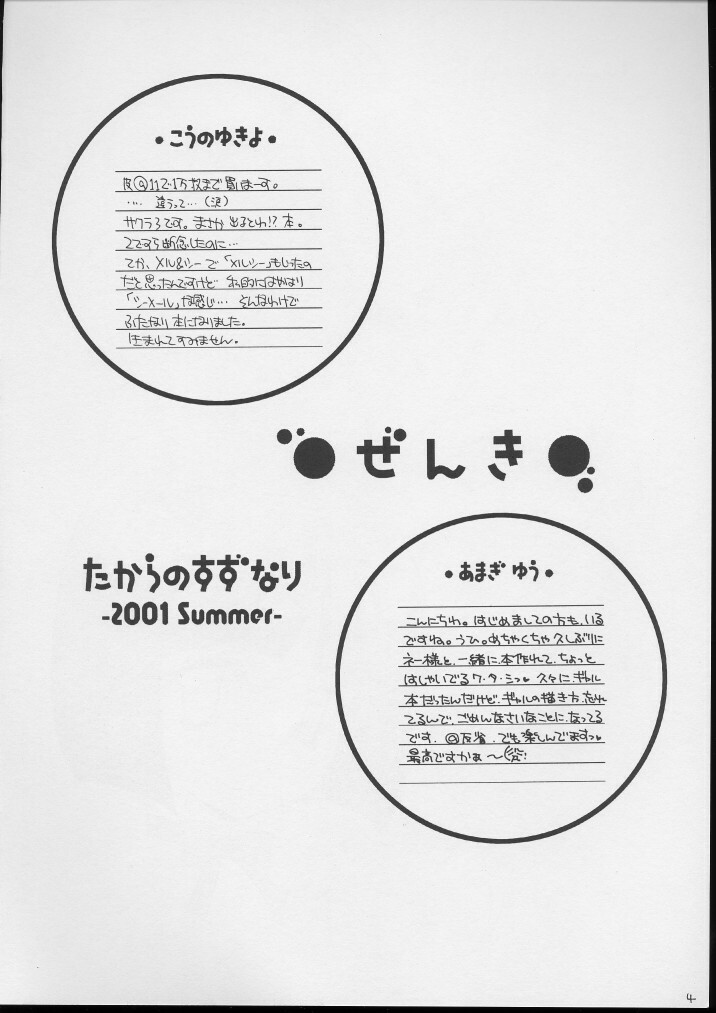 • こうのゆきよ •
@11で1万枚まで買いまーす。
‥‥ 違うって…(涙)
サクラ3です。まさか出るとわ!? 本。
2ですら断念したのに…
てか、メル&シーで「メルシー」もじったの
だと思ったんですけど 私的にはやはり
「シーメール」な感じ… そんなわけで
ふたなり本になりました。
生まれてすみません。
ぜんき
たからのすずなり
-2001 Summer-
• あまぎ ゆう •
こんにちわ。はじめましての方も、いる
ですね。うひ。めちゃくちゃ久しぶりに
ネー様と、一緒に、本作れて、ちょっと
はしゃいでるワ・タ・シっ♥ 久々に ギャル
本だったんだけど、ギャルの描き方、忘れ
てるんで、ごめんなさいなことに、なってる
です。@反省。でも楽しんでますっ♥
最高ですかぁ〜
4